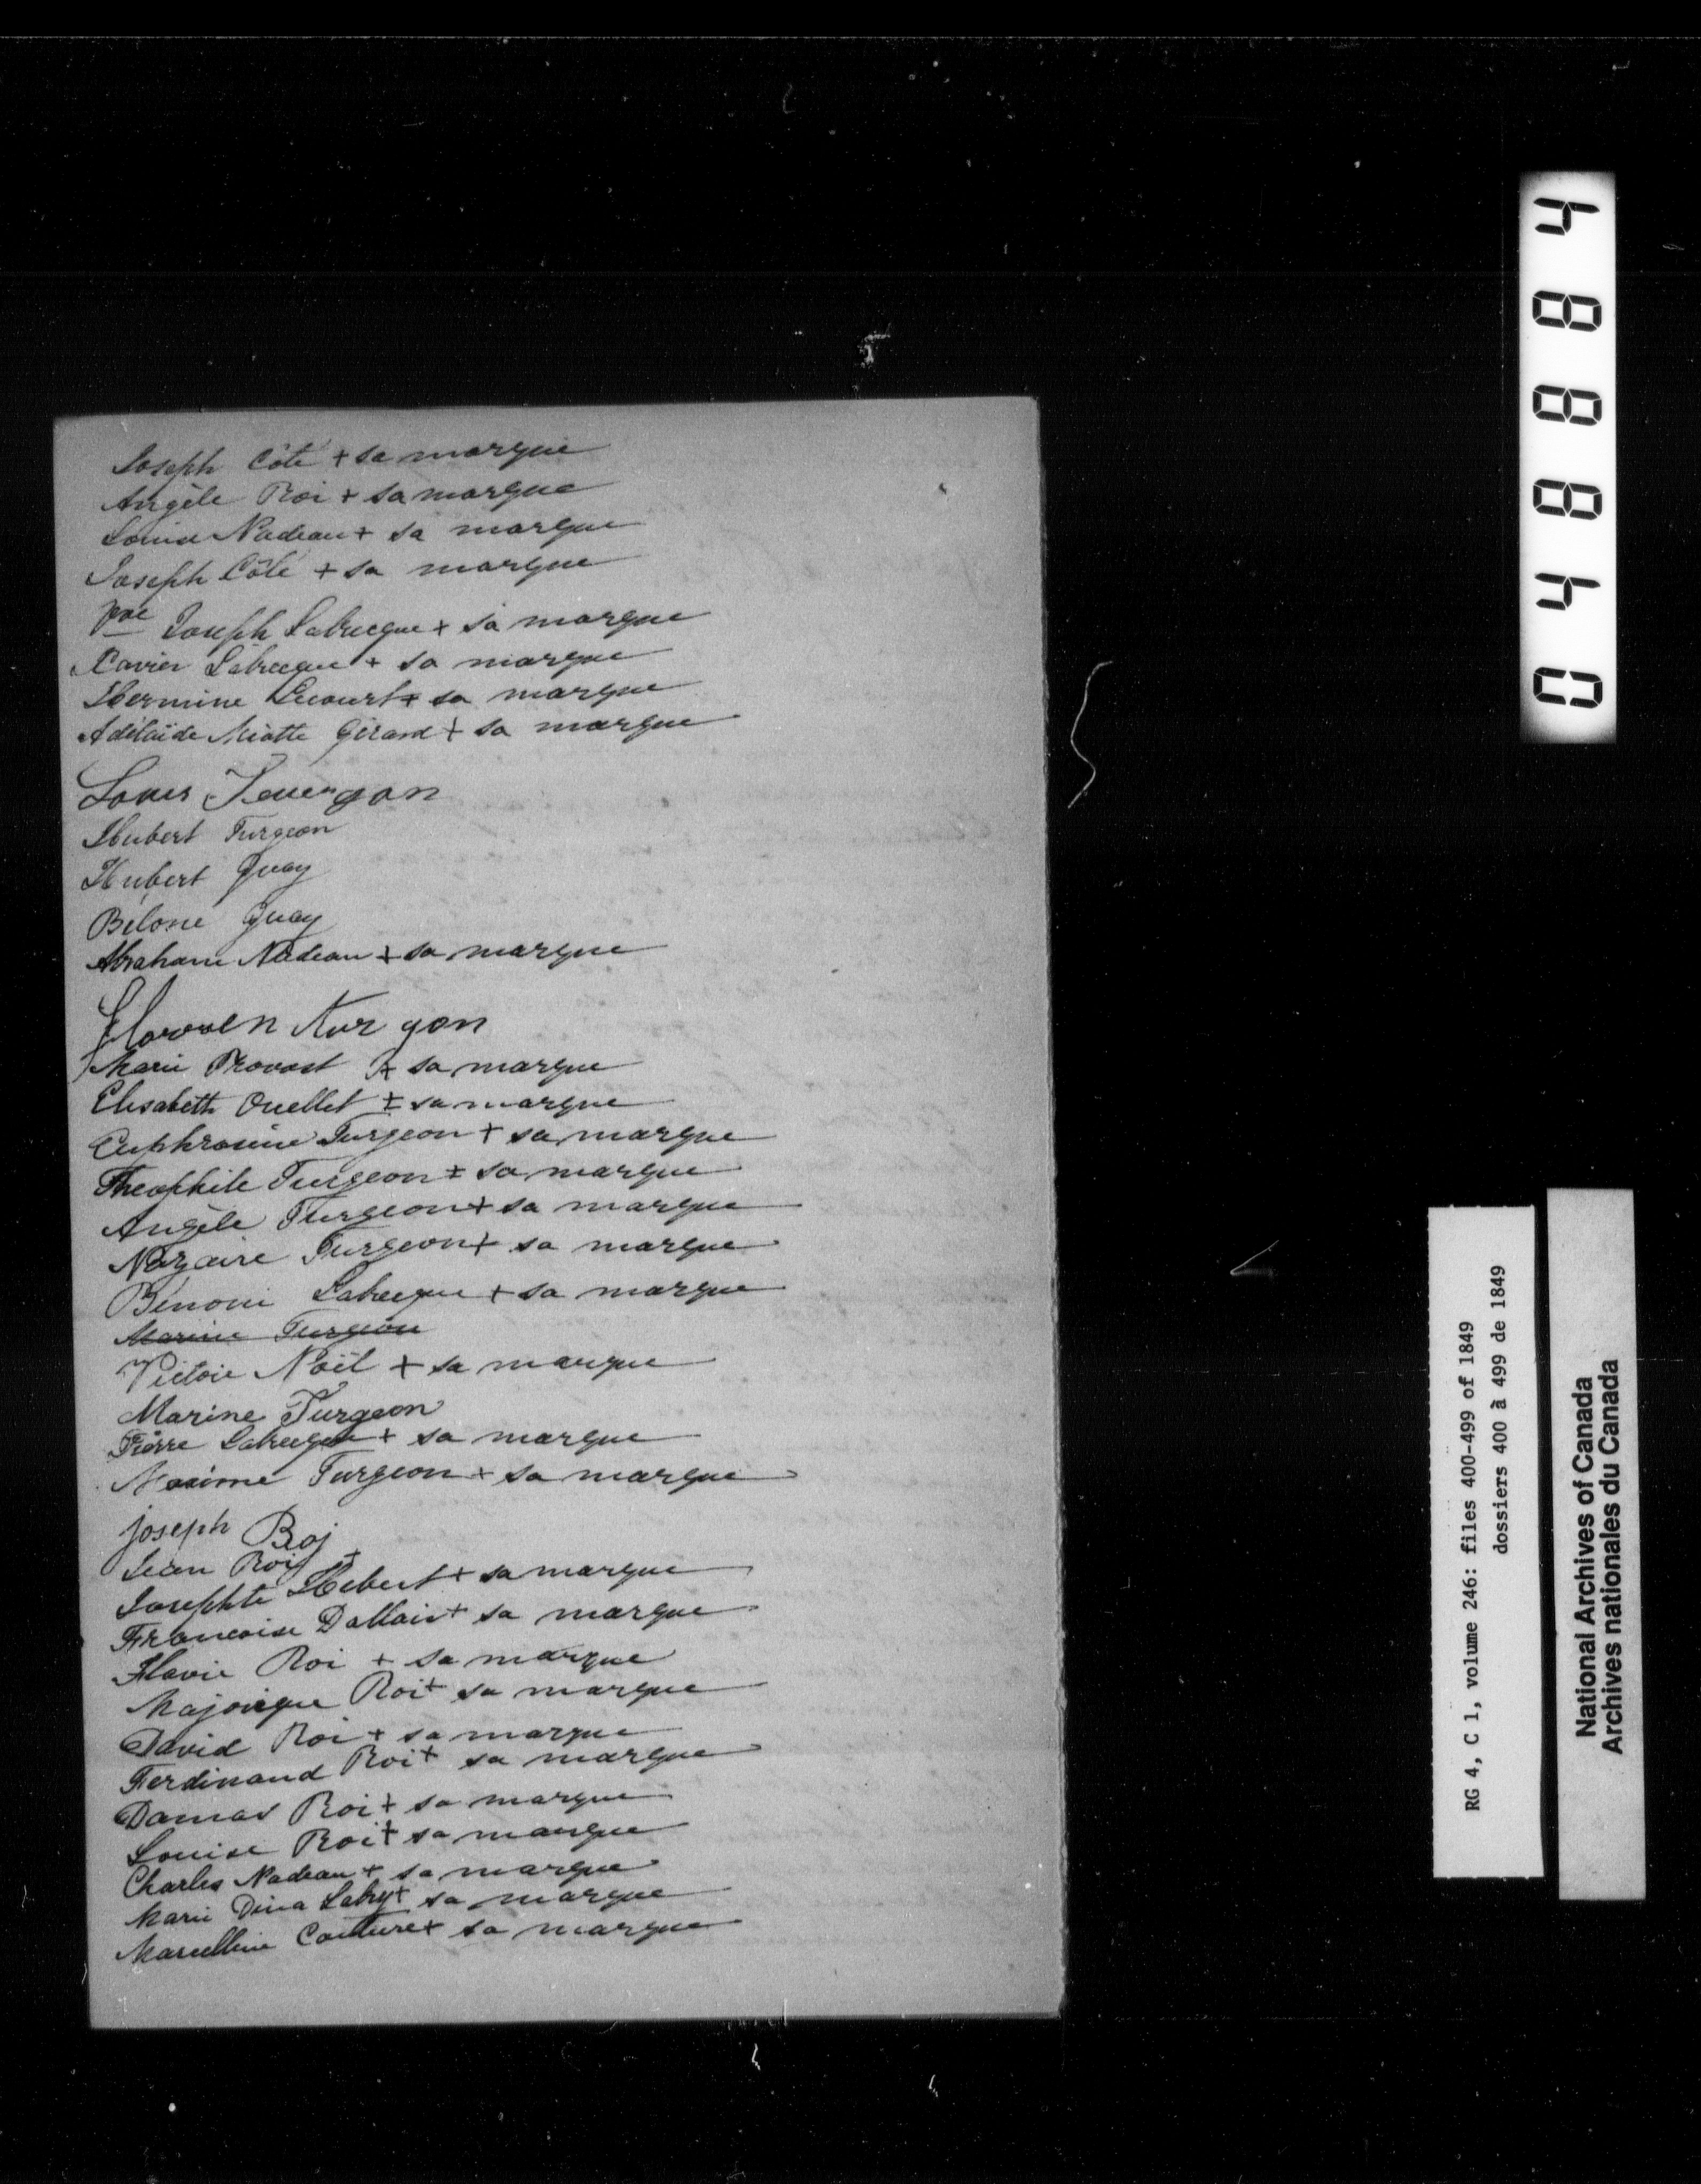 Joseph Côté + sa marque
Angèle Roi + sa marque
Louise Nadeau + sa marque
Joseph Côté + sa marque
Joseph Labrecque + sa marque
Xavier Labrecque + sa marque
Hermine Lecourt + sa marque
Adélaïde Miotte Gérard + sa marque
Louis
Hubert Turgeon
Hubert Guay
Bélone Guay
Abraham Nadeau + sa marque
Marie Provost + sa marque
Elisabeth Ouellet + sa marque
Euphrosine Turgeon + sa marque
Théophile Turgeon + sa marque
Angèle Turgeon + sa marque
Nazaire Turgeon + sa marque
Bénoni Labrecque + sa marque
Marine Turgeon
Victoie Noël + sa marque
Marine Turgeon
Pierre Labrecque + sa marque
Maxime Turgeon + sa marque
joseph Roj
Jean Roy +
Josephte Hebert + sa marque
Francoise Dallair + sa marque
Flavie Roi + sa marque
Majorique Roi + sa marque
David Roi + sa marque
Ferdinand Roi + sa marque
Damas Roi + sa marque
Louise Roi + sa marque
Charles Nadeau + sa marque
Marie Dina + sa marque
Marcelline Couture + sa marque
048884
RG 4, C 1, volume 246: files 400-499 of 1849
dossiers 400 à 499 de 1849
National Archives of Canada
Archives nationales du Canada